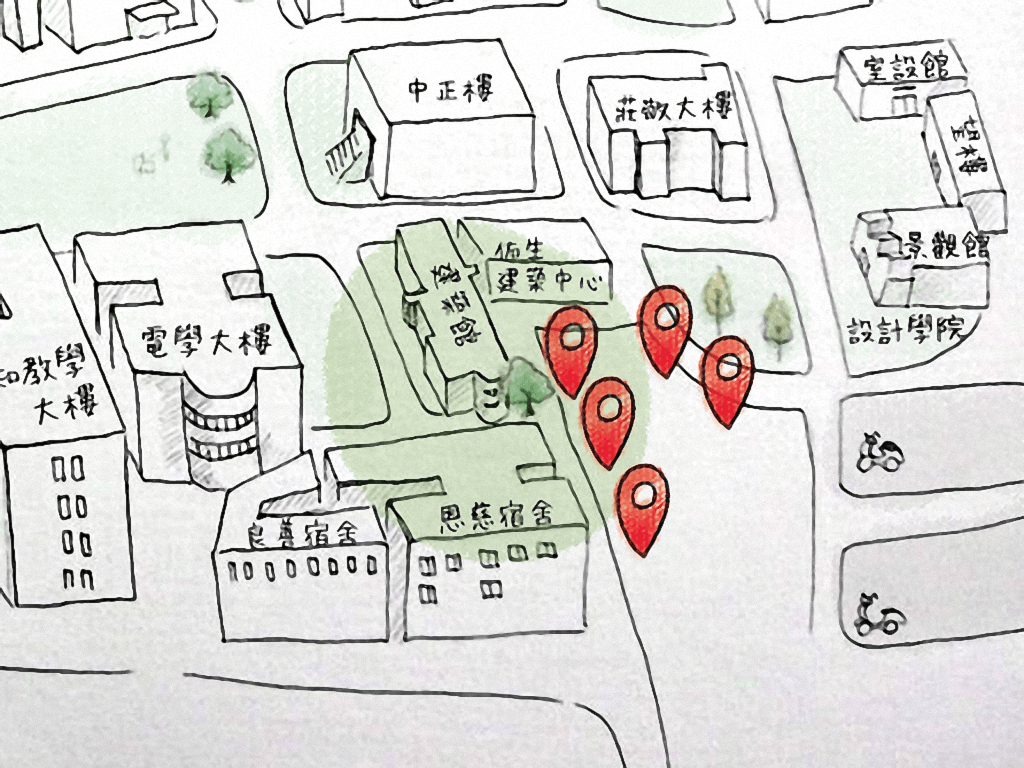 中正樓
莊敬大樓
室設館
望樓
景觀館
設計學院
建築館
衍生
建築中心
電學大樓
知教學
大樓
良善宿舍
恩慈宿舍